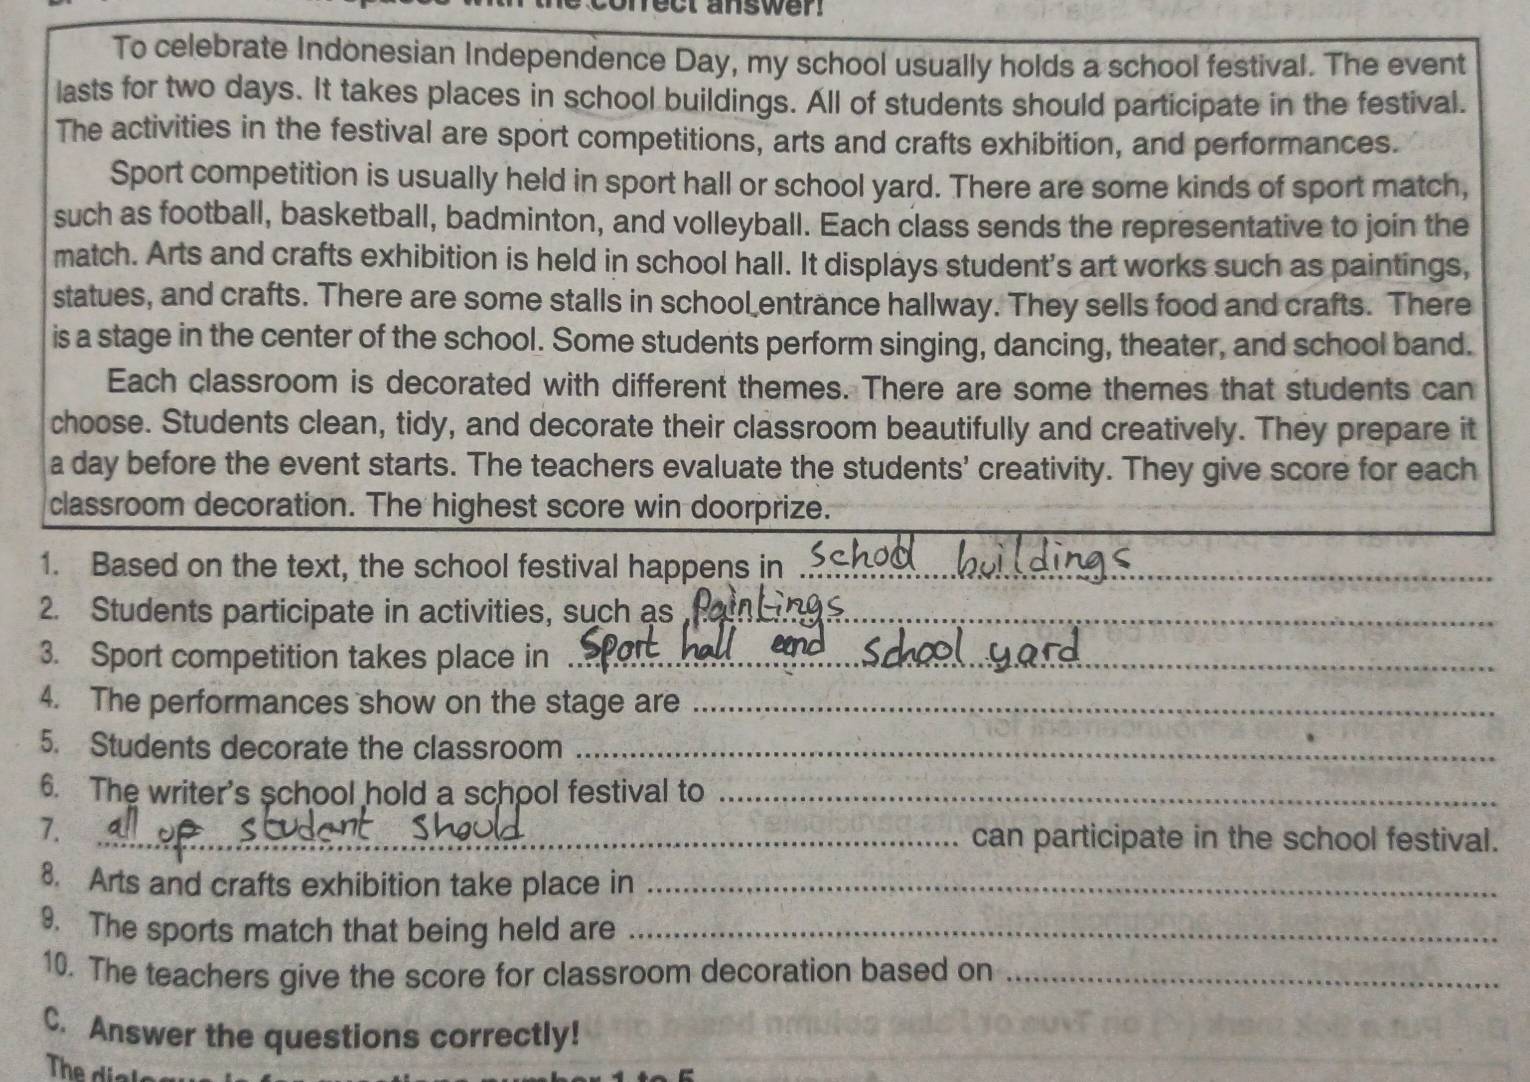 correct answer!
To celebrate Indonesian Independence Day, my school usually holds a school festival. The event
lasts for two days. It takes places in school buildings. All of students should participate in the festival.
The activities in the festival are sport competitions, arts and crafts exhibition, and performances.
Sport competition is usually held in sport hall or school yard. There are some kinds of sport match,
such as football, basketball, badminton, and volleyball. Each class sends the representative to join the
match. Arts and crafts exhibition is held in school hall. It displays student's art works such as paintings,
statues, and crafts. There are some stalls in school entrance hallway. They sells food and crafts. There
is a stage in the center of the school. Some students perform singing, dancing, theater, and school band.
Each classroom is decorated with different themes. There are some themes that students can
choose. Students clean, tidy, and decorate their classroom beautifully and creatively. They prepare it
a day before the event starts. The teachers evaluate the students' creativity. They give score for each
classroom decoration. The highest score win doorprize.
1. Based on the text, the school festival happens in school buildings
2. Students participate in activities, such as paintings
3. Sport competition takes place in Sport hall and school yard
4. The performances show on the stage are
5. Students decorate the classroom
6. The writer's school hold a school festival to
7. all of student should can participate in the school festival.
8. Arts and crafts exhibition take place in
9. The sports match that being held are
10. The teachers give the score for classroom decoration based on
C. Answer the questions correctly!
The